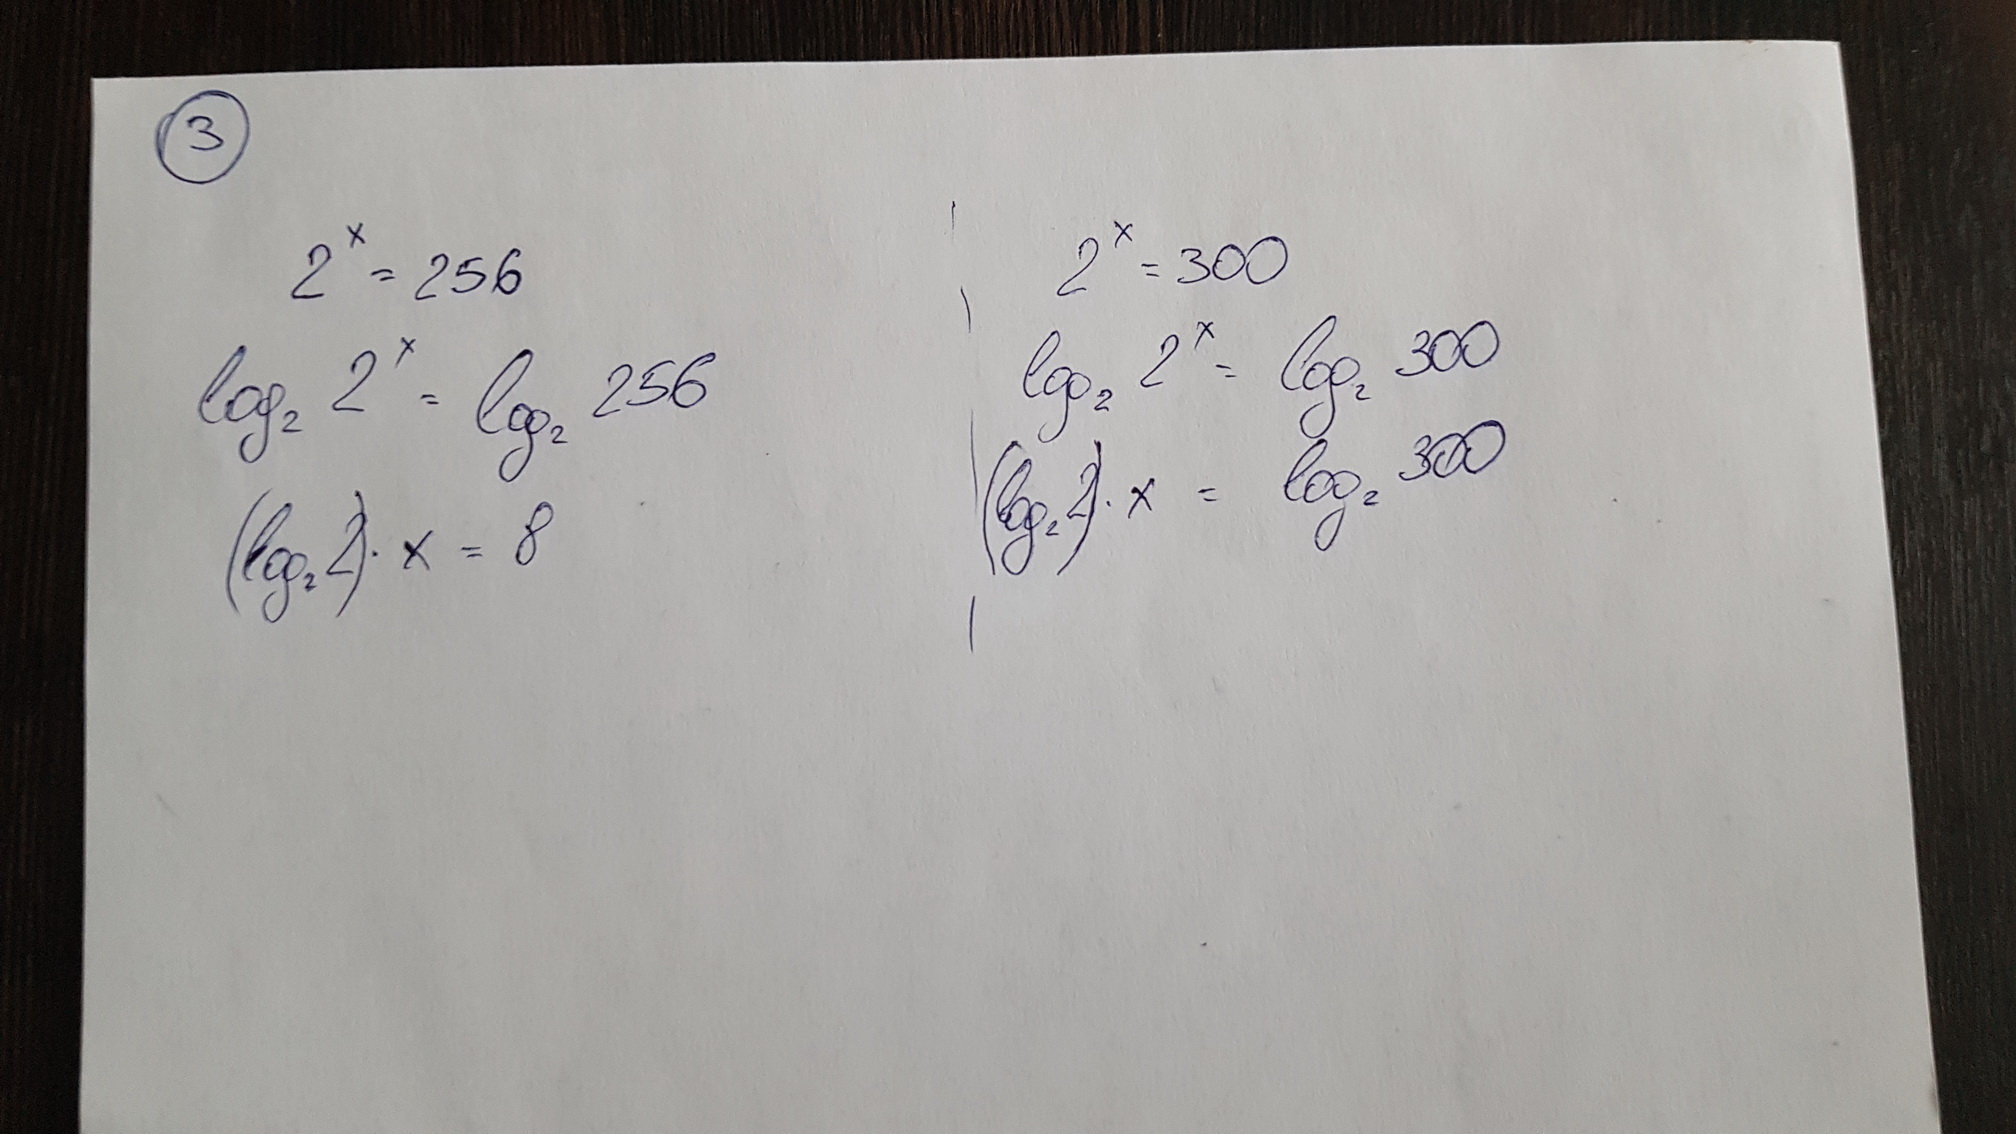 3
2ˣ = 256
log₂ 2ˣ = log₂ 256
(log₂ 2) · x = 8
2ˣ = 300
log₂ 2ˣ = log₂ 300
(log₂ 2) · x = log₂ 300